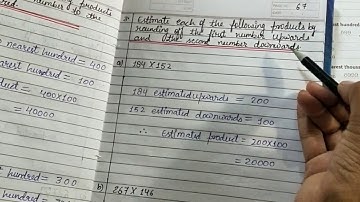 products
to the
nearest hundred = 400
nearest hundred = 100
= 400×100
= 40000
hundred = 300
hundred =
67
Estimate each of the following products by
rounding of the first number upwards
and the second number downwards
a) 184 × 152
184 estimated upwards = 200
152 estimated downwards = 100
∴ estimated product = 200×100
= 20000
b) 267 × 146